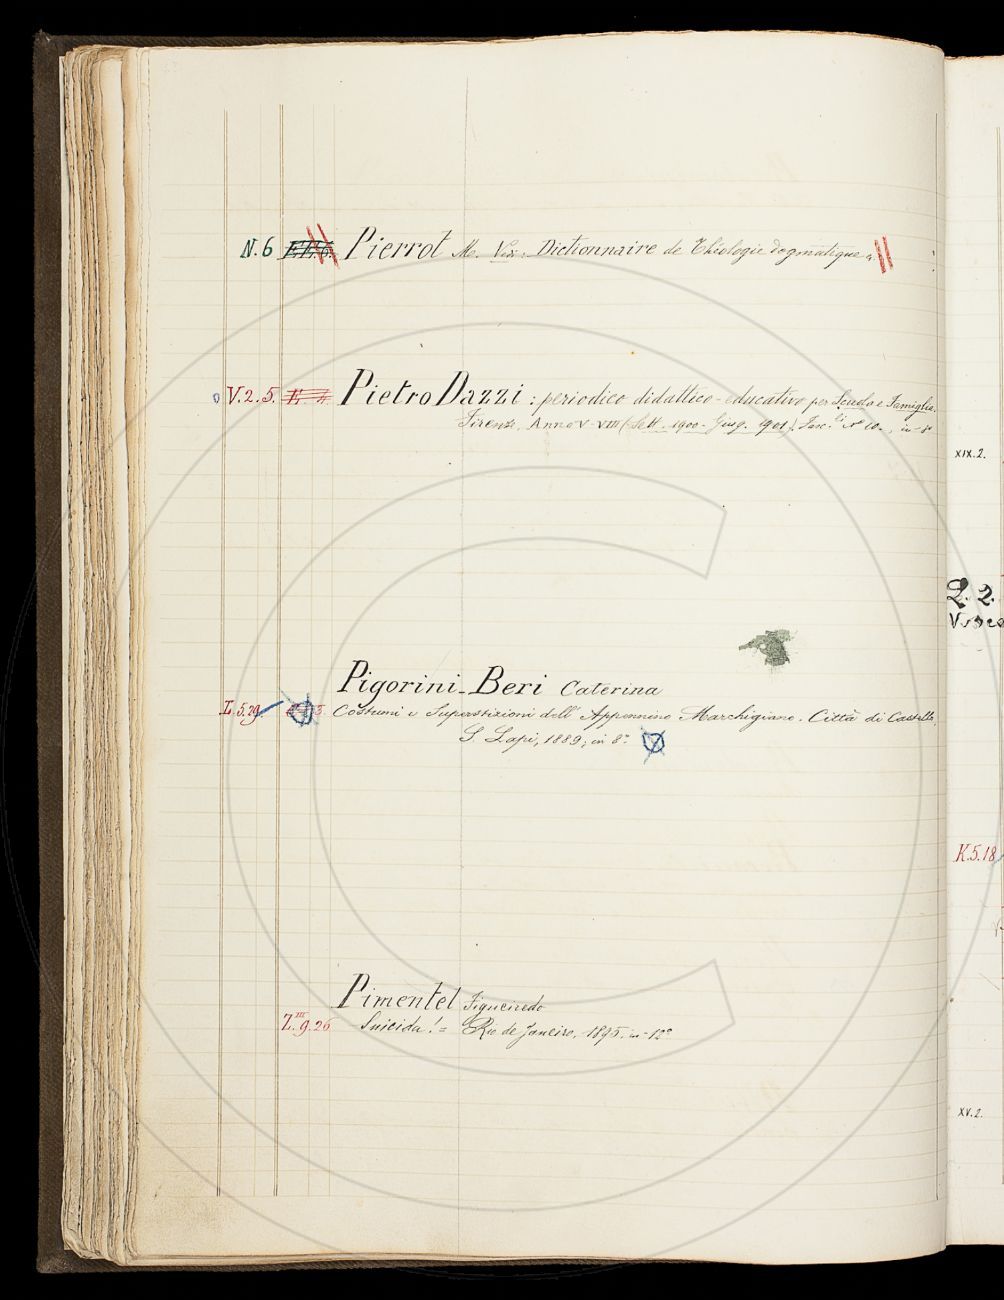 N.6 Pierrot M. Vex: Dictionnaire de Théologie dogmatique
V.2.5. Pietro Dazzi: periodico didattico-educativo per Scuola e Famiglia.
Firenze, Anno V-VIII (Sett. 1900-Giug. 1901). Fasc. N° 10., in-8°
XIX.2.
L. 2.
Pigorini-Beri Caterina
L.5.29 Costumi e Superstizioni dell' Appennino Marchigiano. Città di Castello,
S. Lapi, 1889; in 8°
K.5.18
Pimentel Figueiredo
Z.III.9.26 Suicida! = Rio de Janeiro, 1895. in-12°
XV.2.